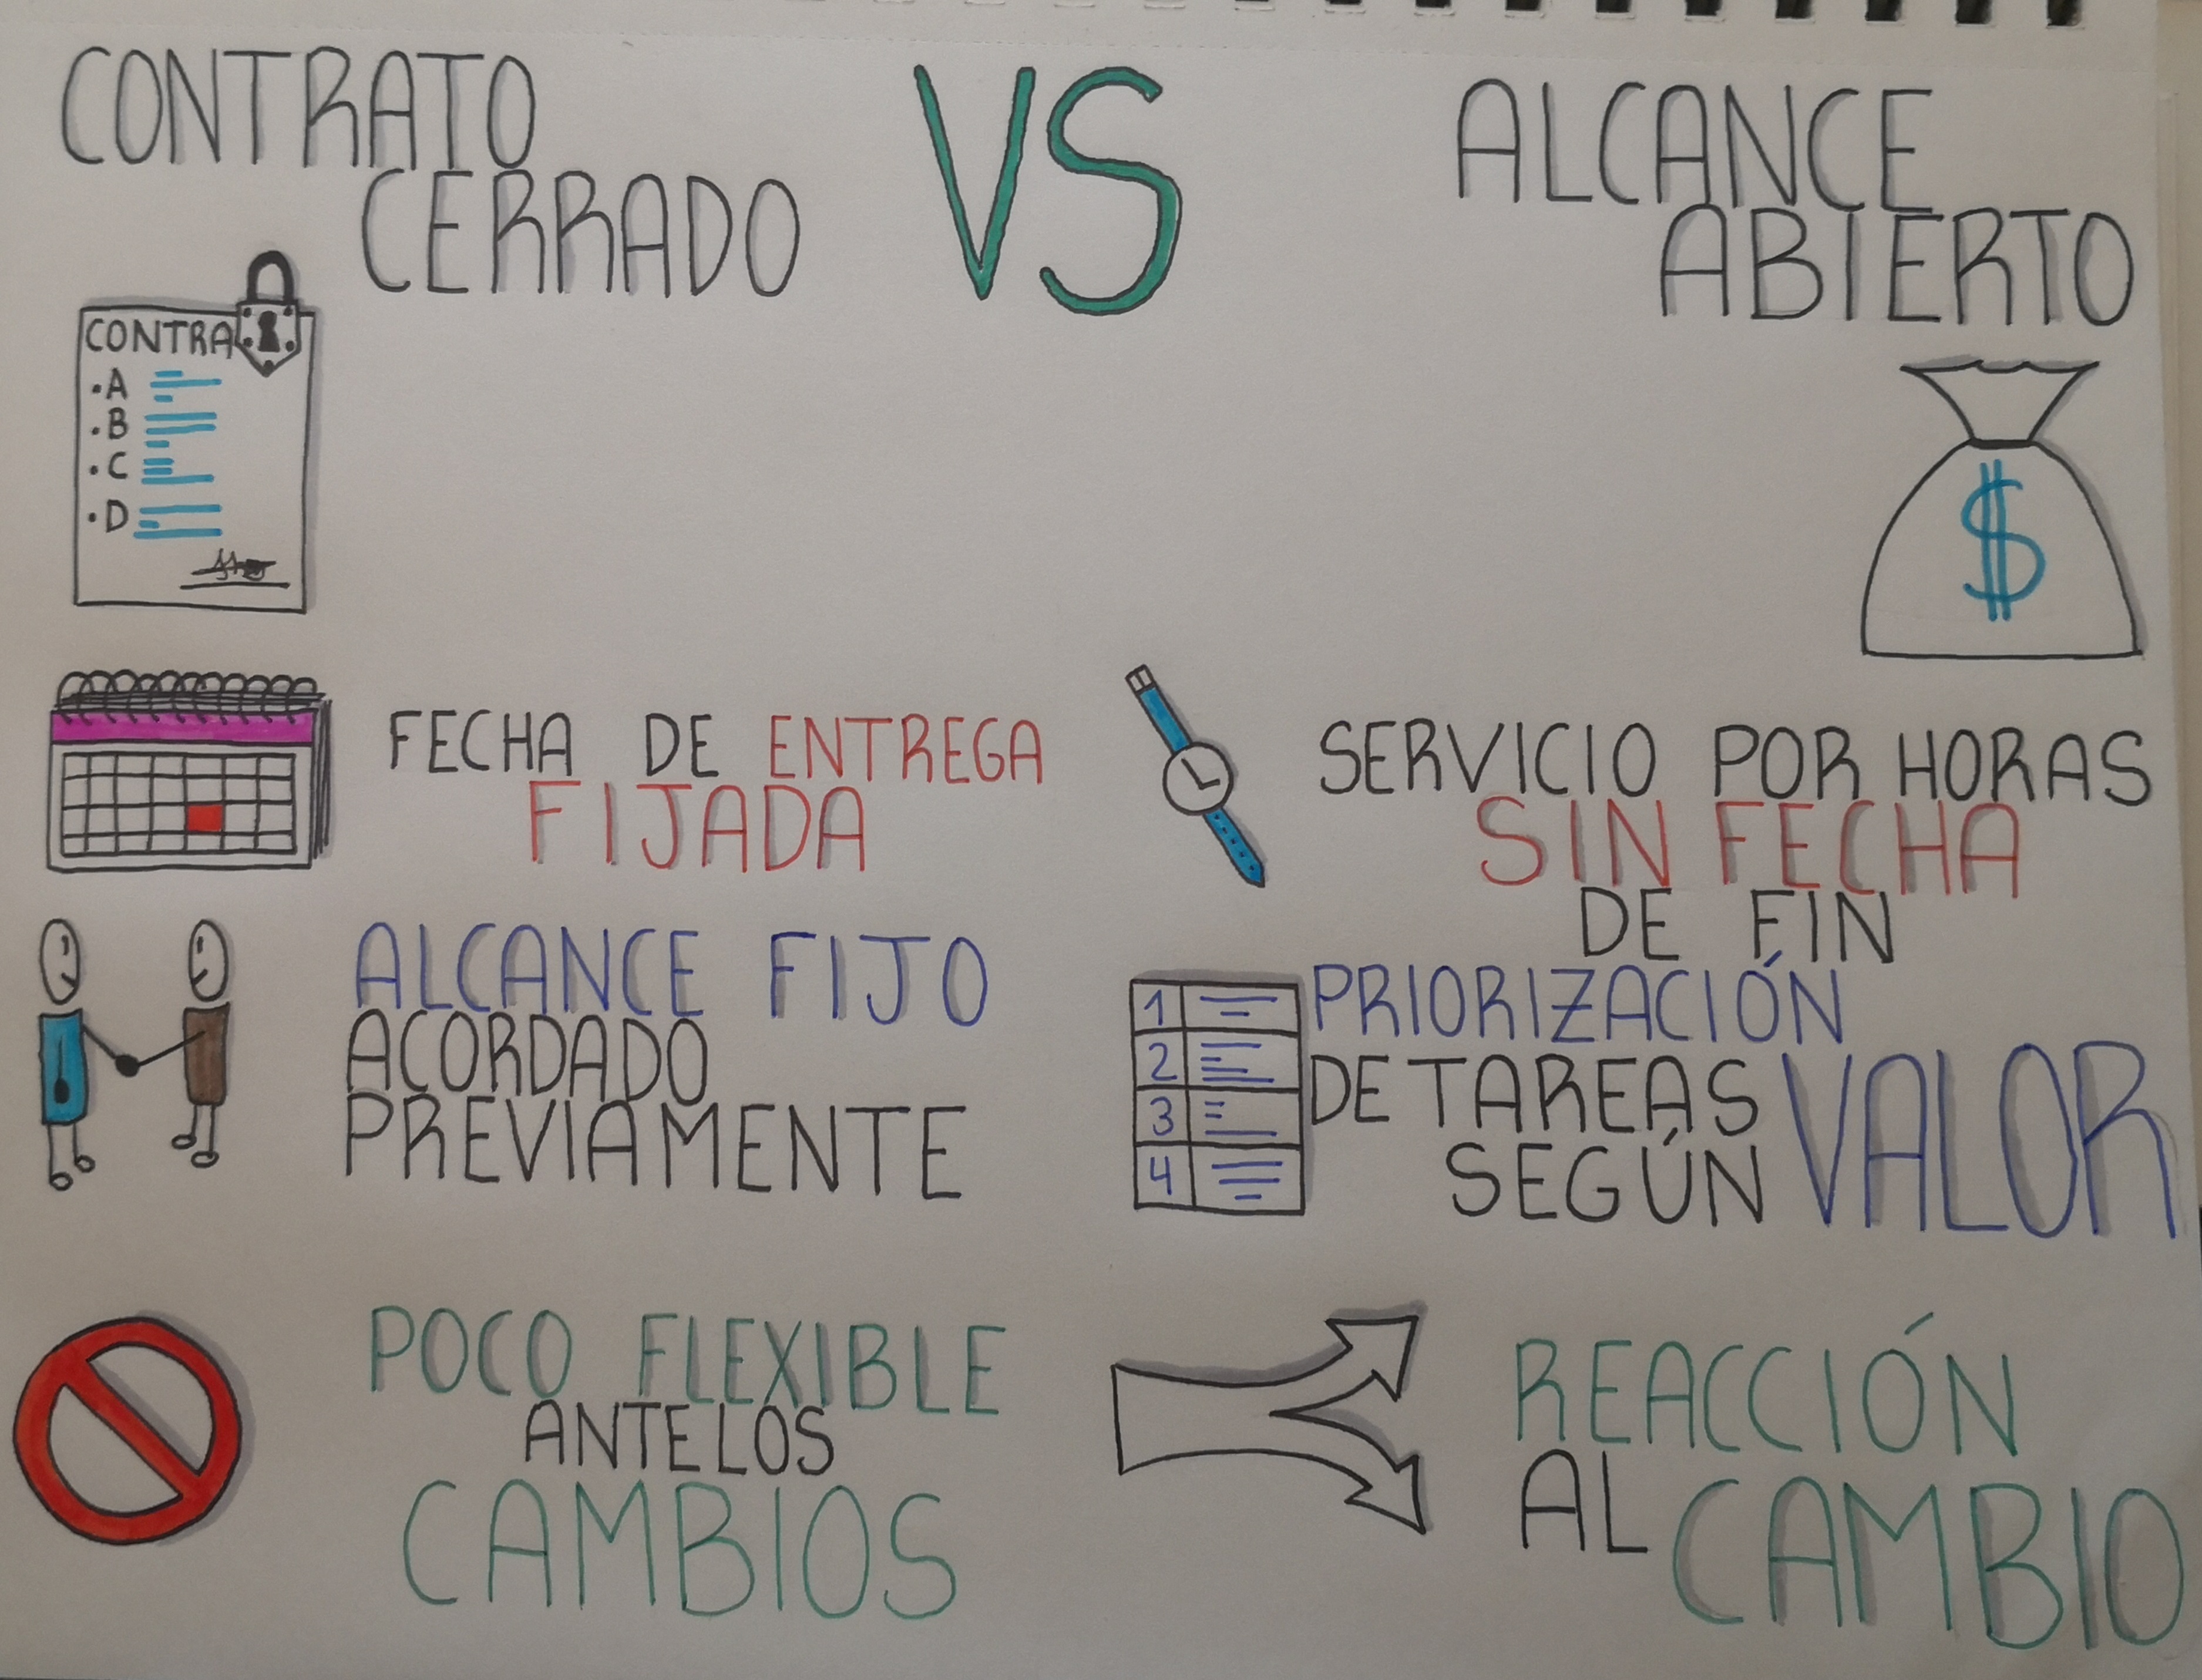 CONTRATO
CERRADO
VS
ALCANCE
ABIERTO
CONTRA
·A
·B
·C
·D
$
FECHA DE ENTREGA
FIJADA
SERVICIO POR HORAS
SIN FECHA
DE FIN
ALCANCE FIJO
ACORDADO
PREVIAMENTE
1
2
3
4
PRIORIZACIÓN
DE TAREAS
SEGÚN VALOR
POCO FLEXIBLE
ANTE LOS
CAMBIOS
REACCIÓN
AL CAMBIO